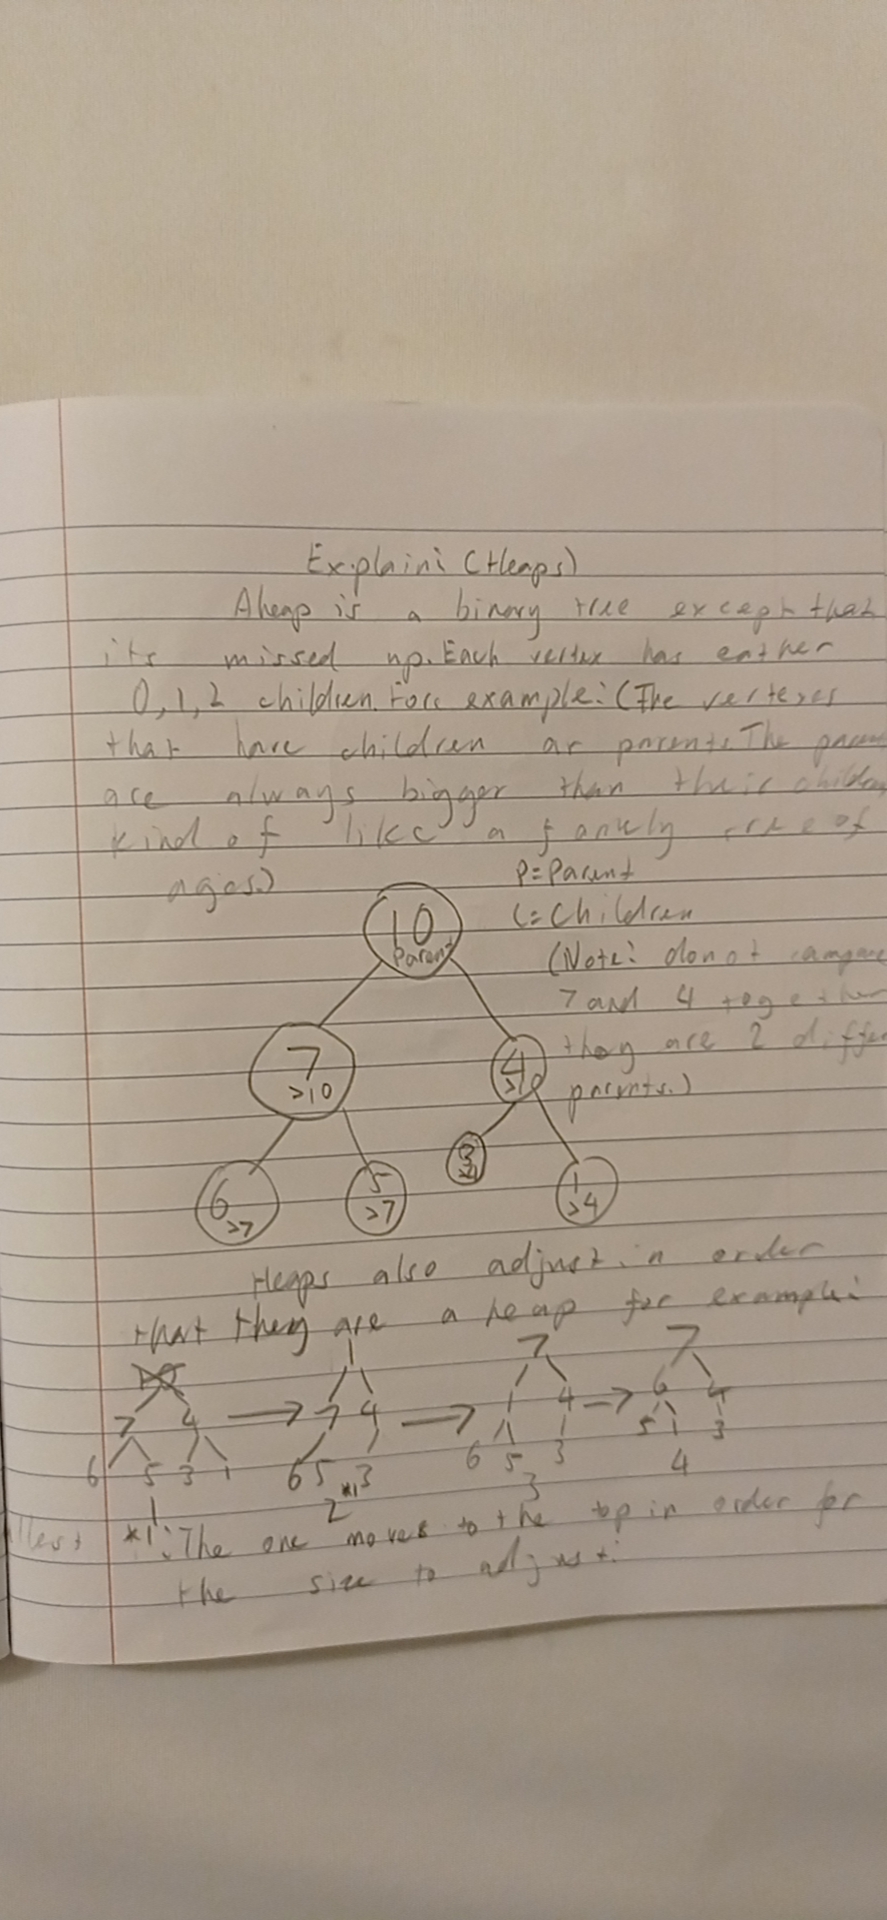 Explain: (Heaps)
A heap is a binary tree except that
its missed up. Each vertex has eather
0, 1, 2 children. Forc example: (The vertexes
that have children ar parents. The paren
are always bigger than their children
kind of like a family tree of
ages.)
P = Parent
C = Children
(Note: do not compare
7 and 4 together
they are 2 differ
parents.)
10
Parent
7
>10
4
>10
6
>7
5
>7
3
>4
1
>4
Heaps also adjust in order
that they are a heap for example:
10 1 7 7
7 4 → 7 4 → 1 4 → 6 4
6 5 3 1 6 5 3 6 5 3 5 1 3
1 2 *1 3 4
*1: The one moves to the top in order for
the size to adjust.